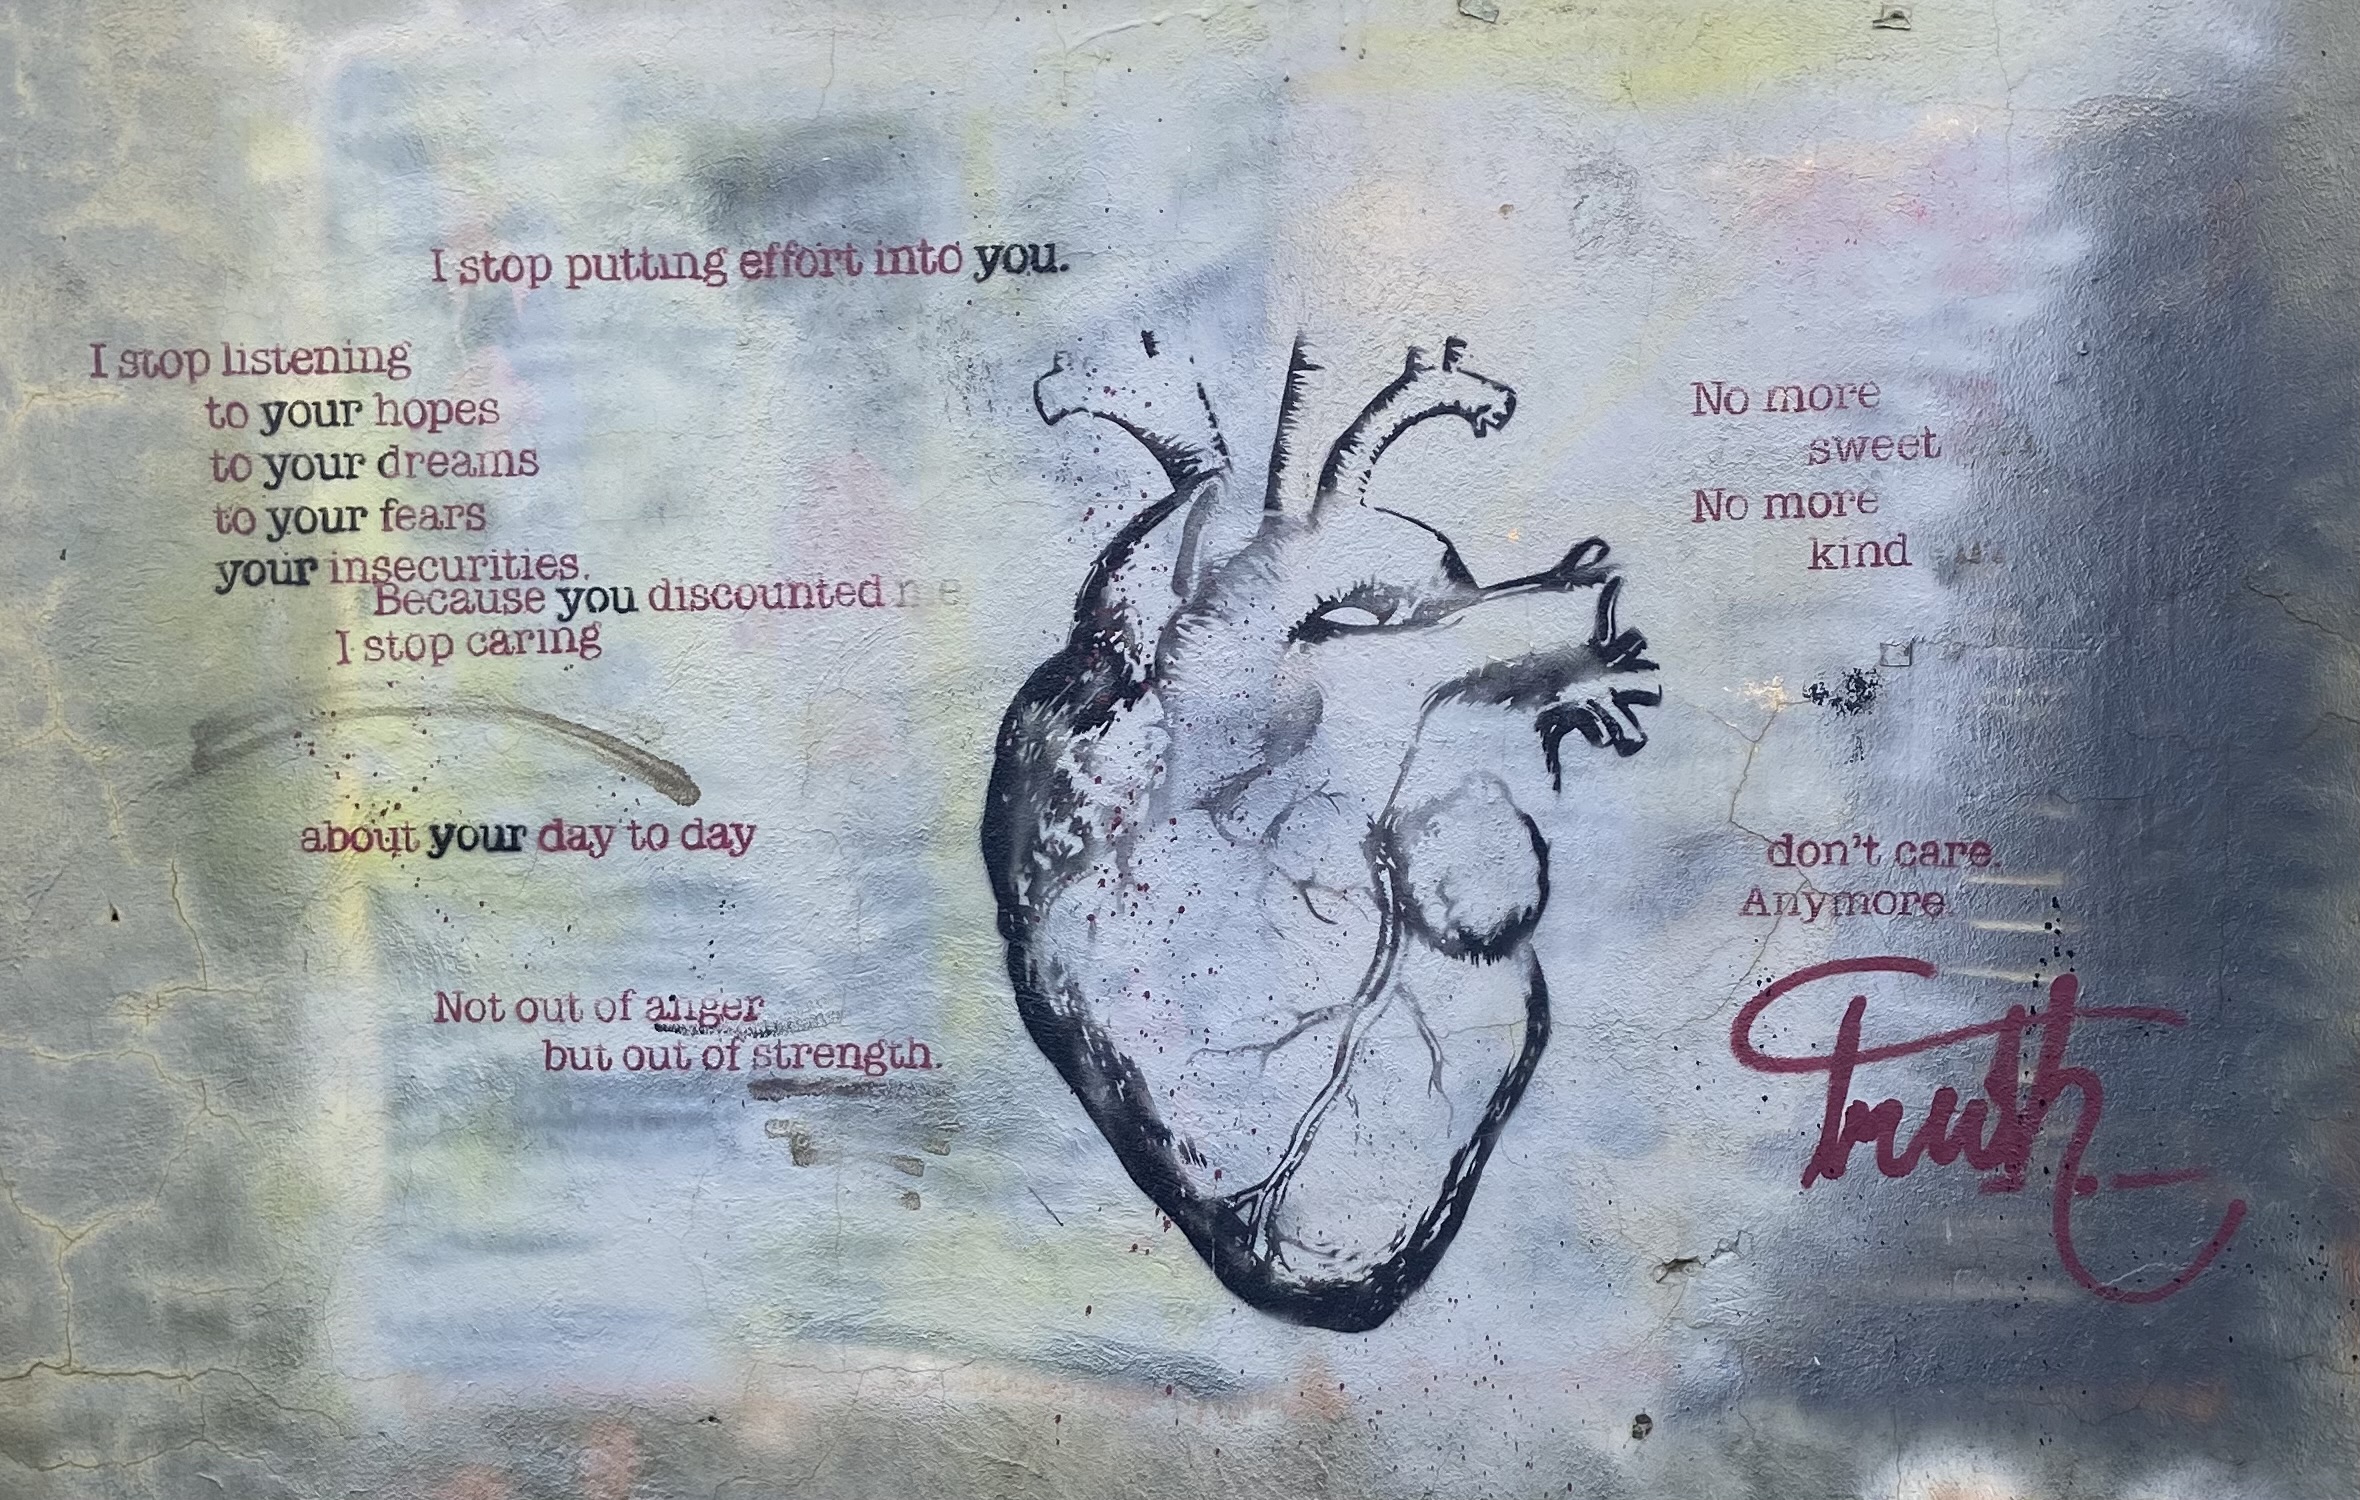 I stop putting effort into you.
I stop listening
to your hopes
to your dreams
to your fears
your insecurities.
Because you discounted me
I stop caring
about your day to day
Not out of anger
but out of strength.
No more
sweet
No more
kind
don't care.
Anymore
Truth